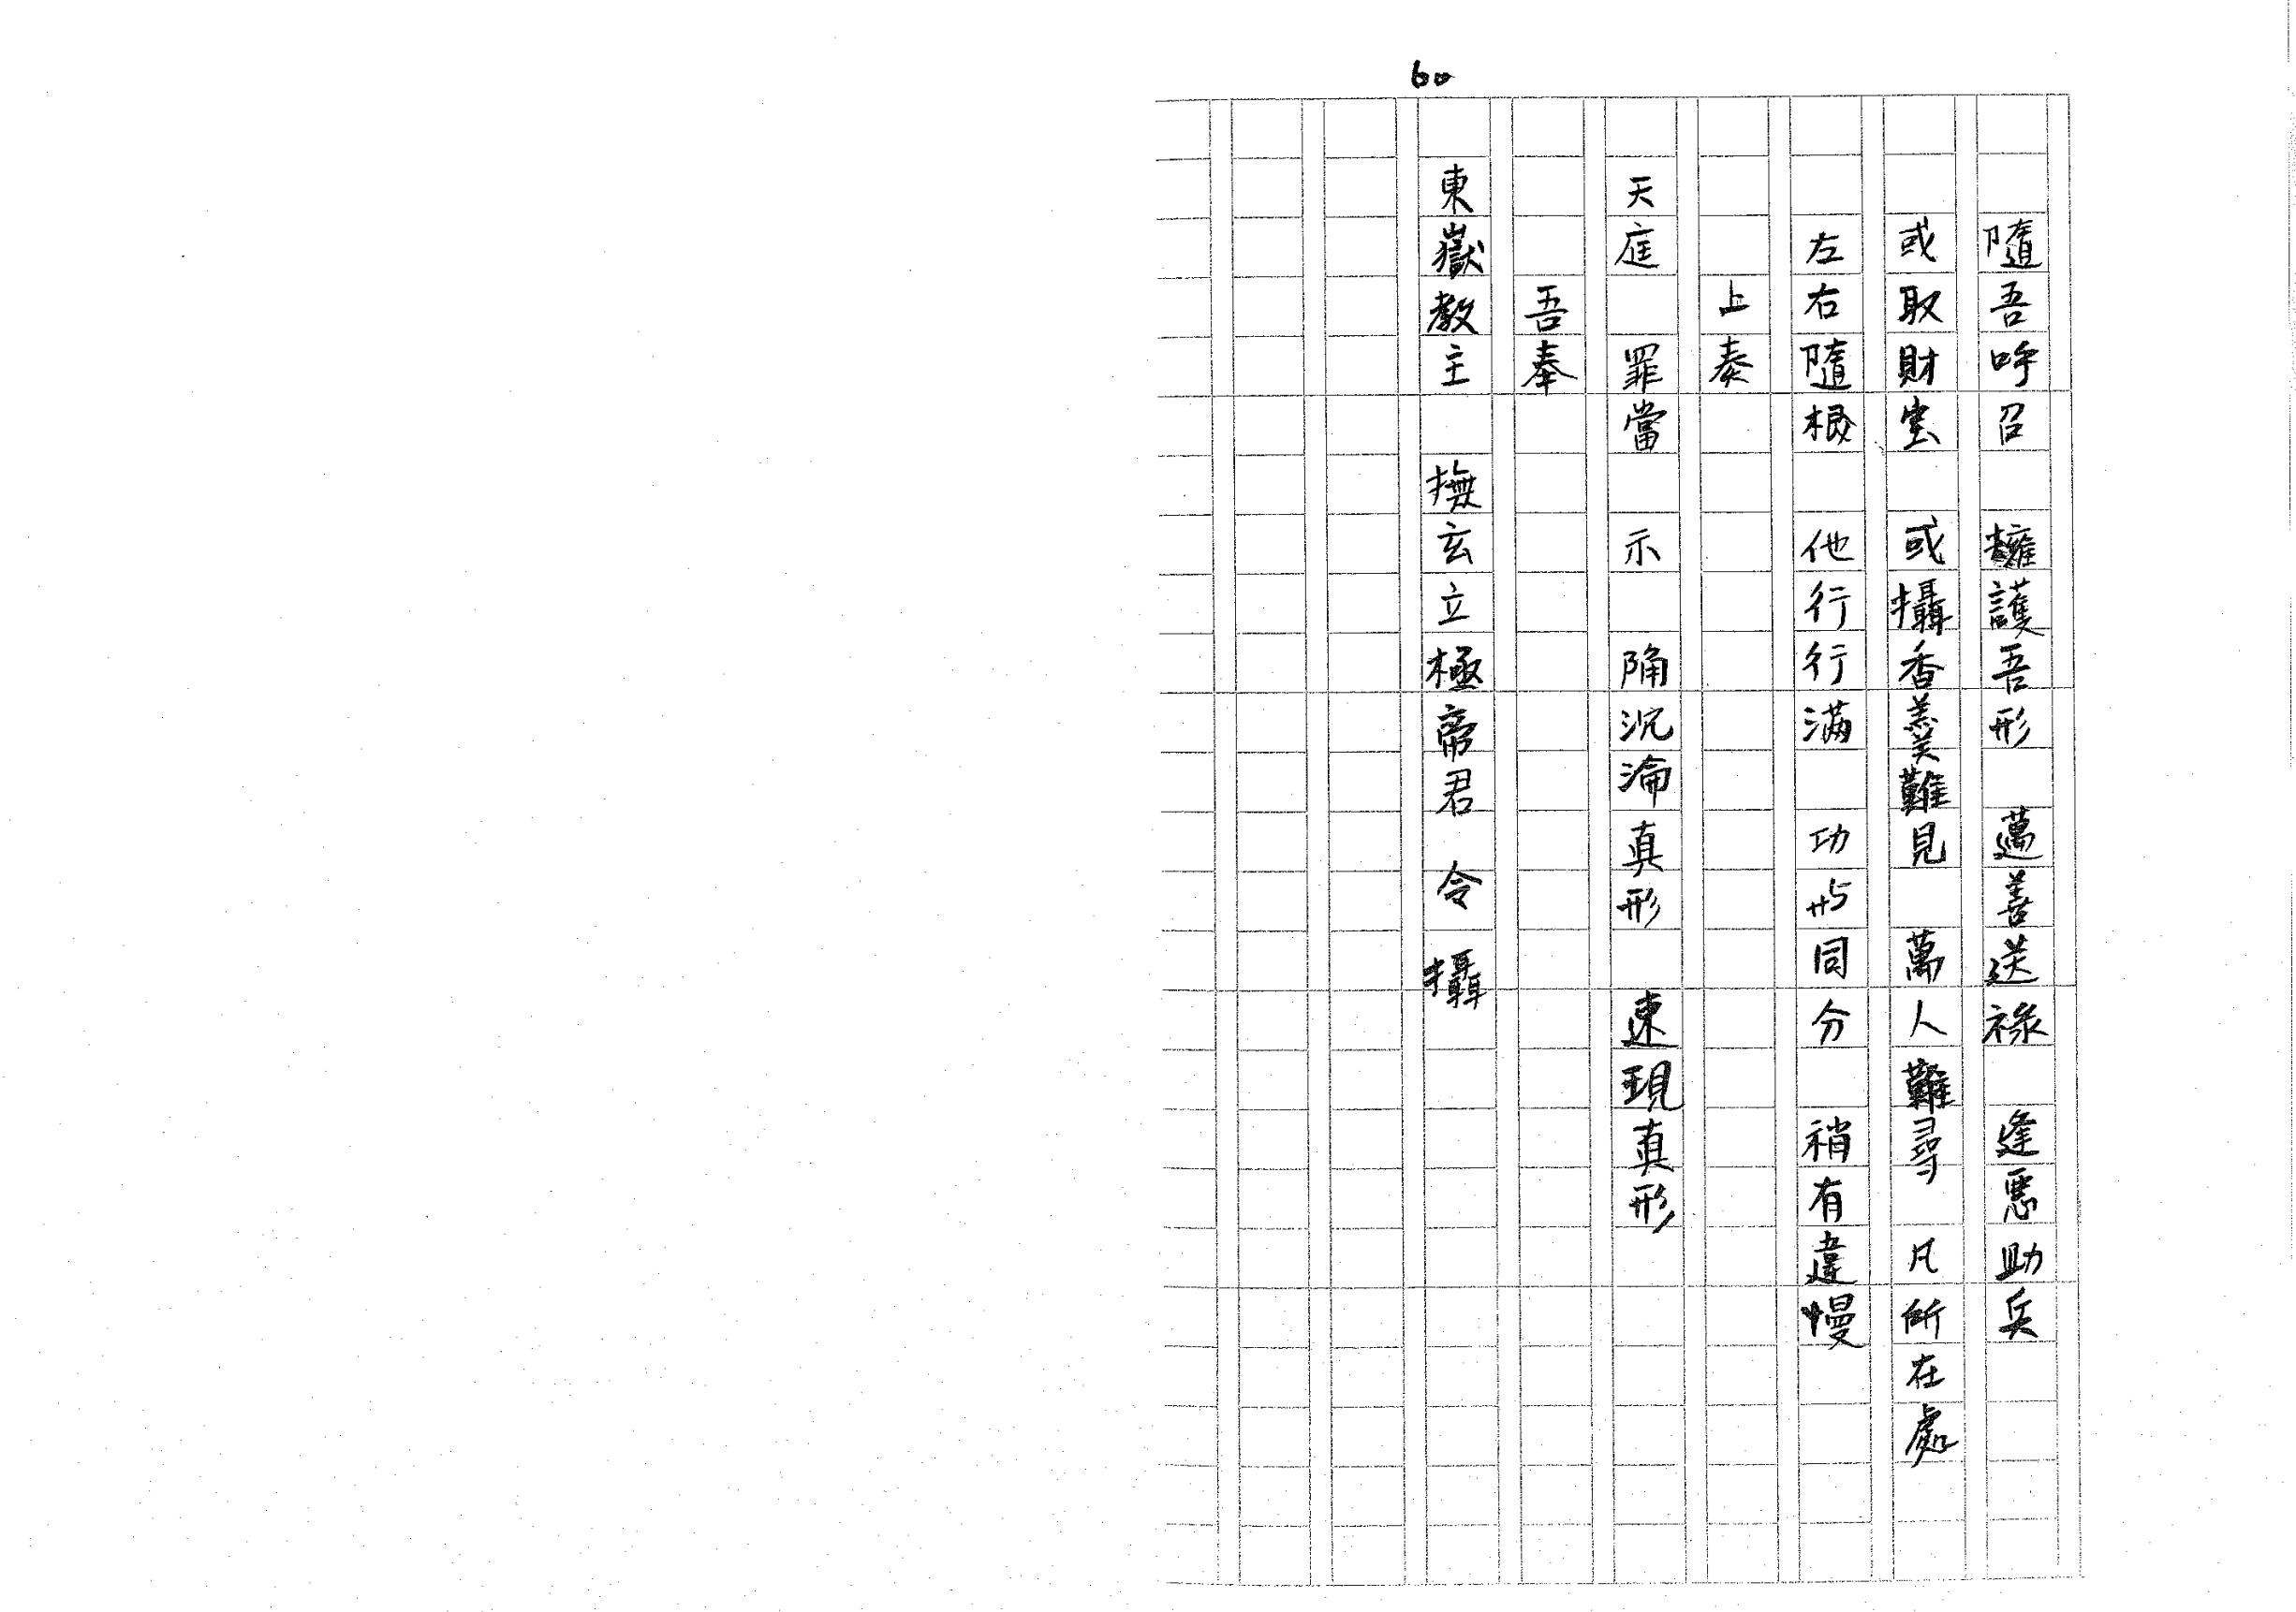 60
隨吾呼召　擁護吾形　邁善送祿　逢惡助兵
或取財寶　或攝香美難見　萬人難尋　凡所在處
左右隨根　他行行滿　功与同分　稍有違慢
上奏
天庭　罪當　示　陷沉淪真形　速現真形
吾奉
東嶽教主　撫玄立極帝君　令　攝